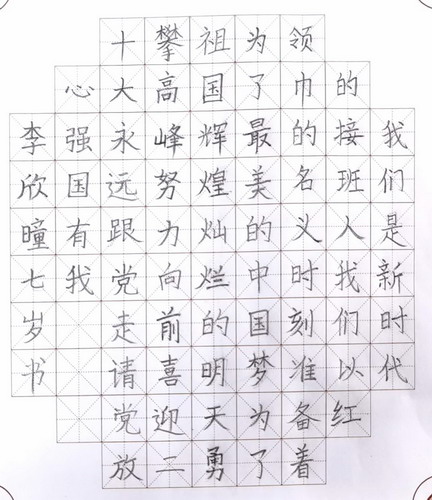 我们是新时代
的接班人我们以红
领巾的名义时刻准备着
为了最美的中国梦为了
祖国辉煌灿烂的明天勇
攀高峰努力向前喜迎二
十大永远跟党走请党放
心强国有我
李欣曈七岁书